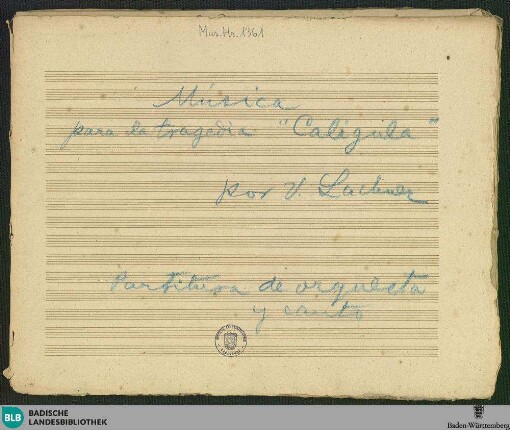 Mus. Hs. 1361
Música
para la tragedia "Calígula"
por V. Lachner
Partitura de orquesta
y canto
BLB
BADISCHE
LANDESBIBLIOTHEK
Baden-Württemberg